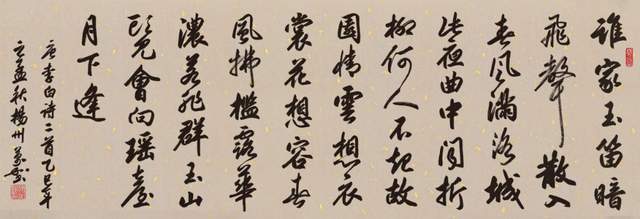 誰家玉笛暗
飛聲散入
春風滿洛城
此夜曲中聞折
柳何人不起故
園情雲想衣
裳花想容春
風拂檻露華
濃若非群玉山
頭見會向瑤臺
月下逢
唐李白詩二首乙巳年
之孟秋揚州